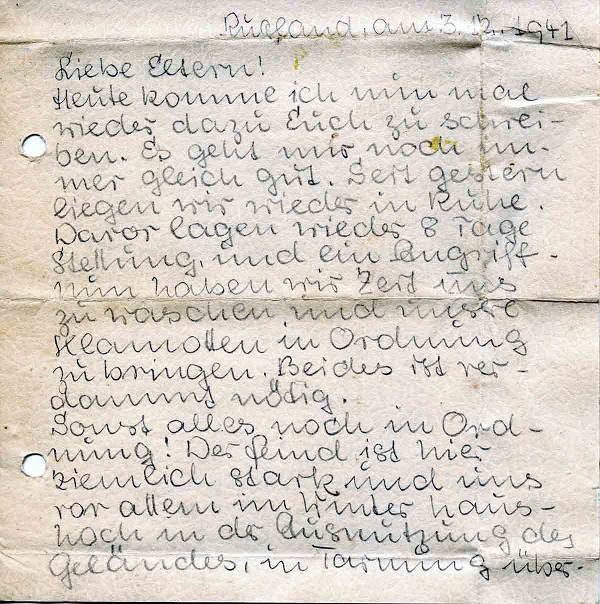 Rußland, am 3.12.1941
Liebe Eltern!
Heute komme ich nun mal
wieder dazu Euch zu schrei-
ben. Es geht mir noch im-
mer gleich gut. Seit gestern
liegen wir wieder in Ruhe.
Davor lagen wieder 8 Tage
Stellung, und ein Angriff.
nun haben wir Zeit uns
zu waschen und unsre
Klamotten in Ordnung
zu bringen. Beides ist ver-
dammt nötig.
Sonst alles noch in Ord-
nung! Der Feind ist hier
ziemlich stark und uns
vor allem im Winter haus-
hoch in der Ausnutzung des
Geländes, in Tarnung über-